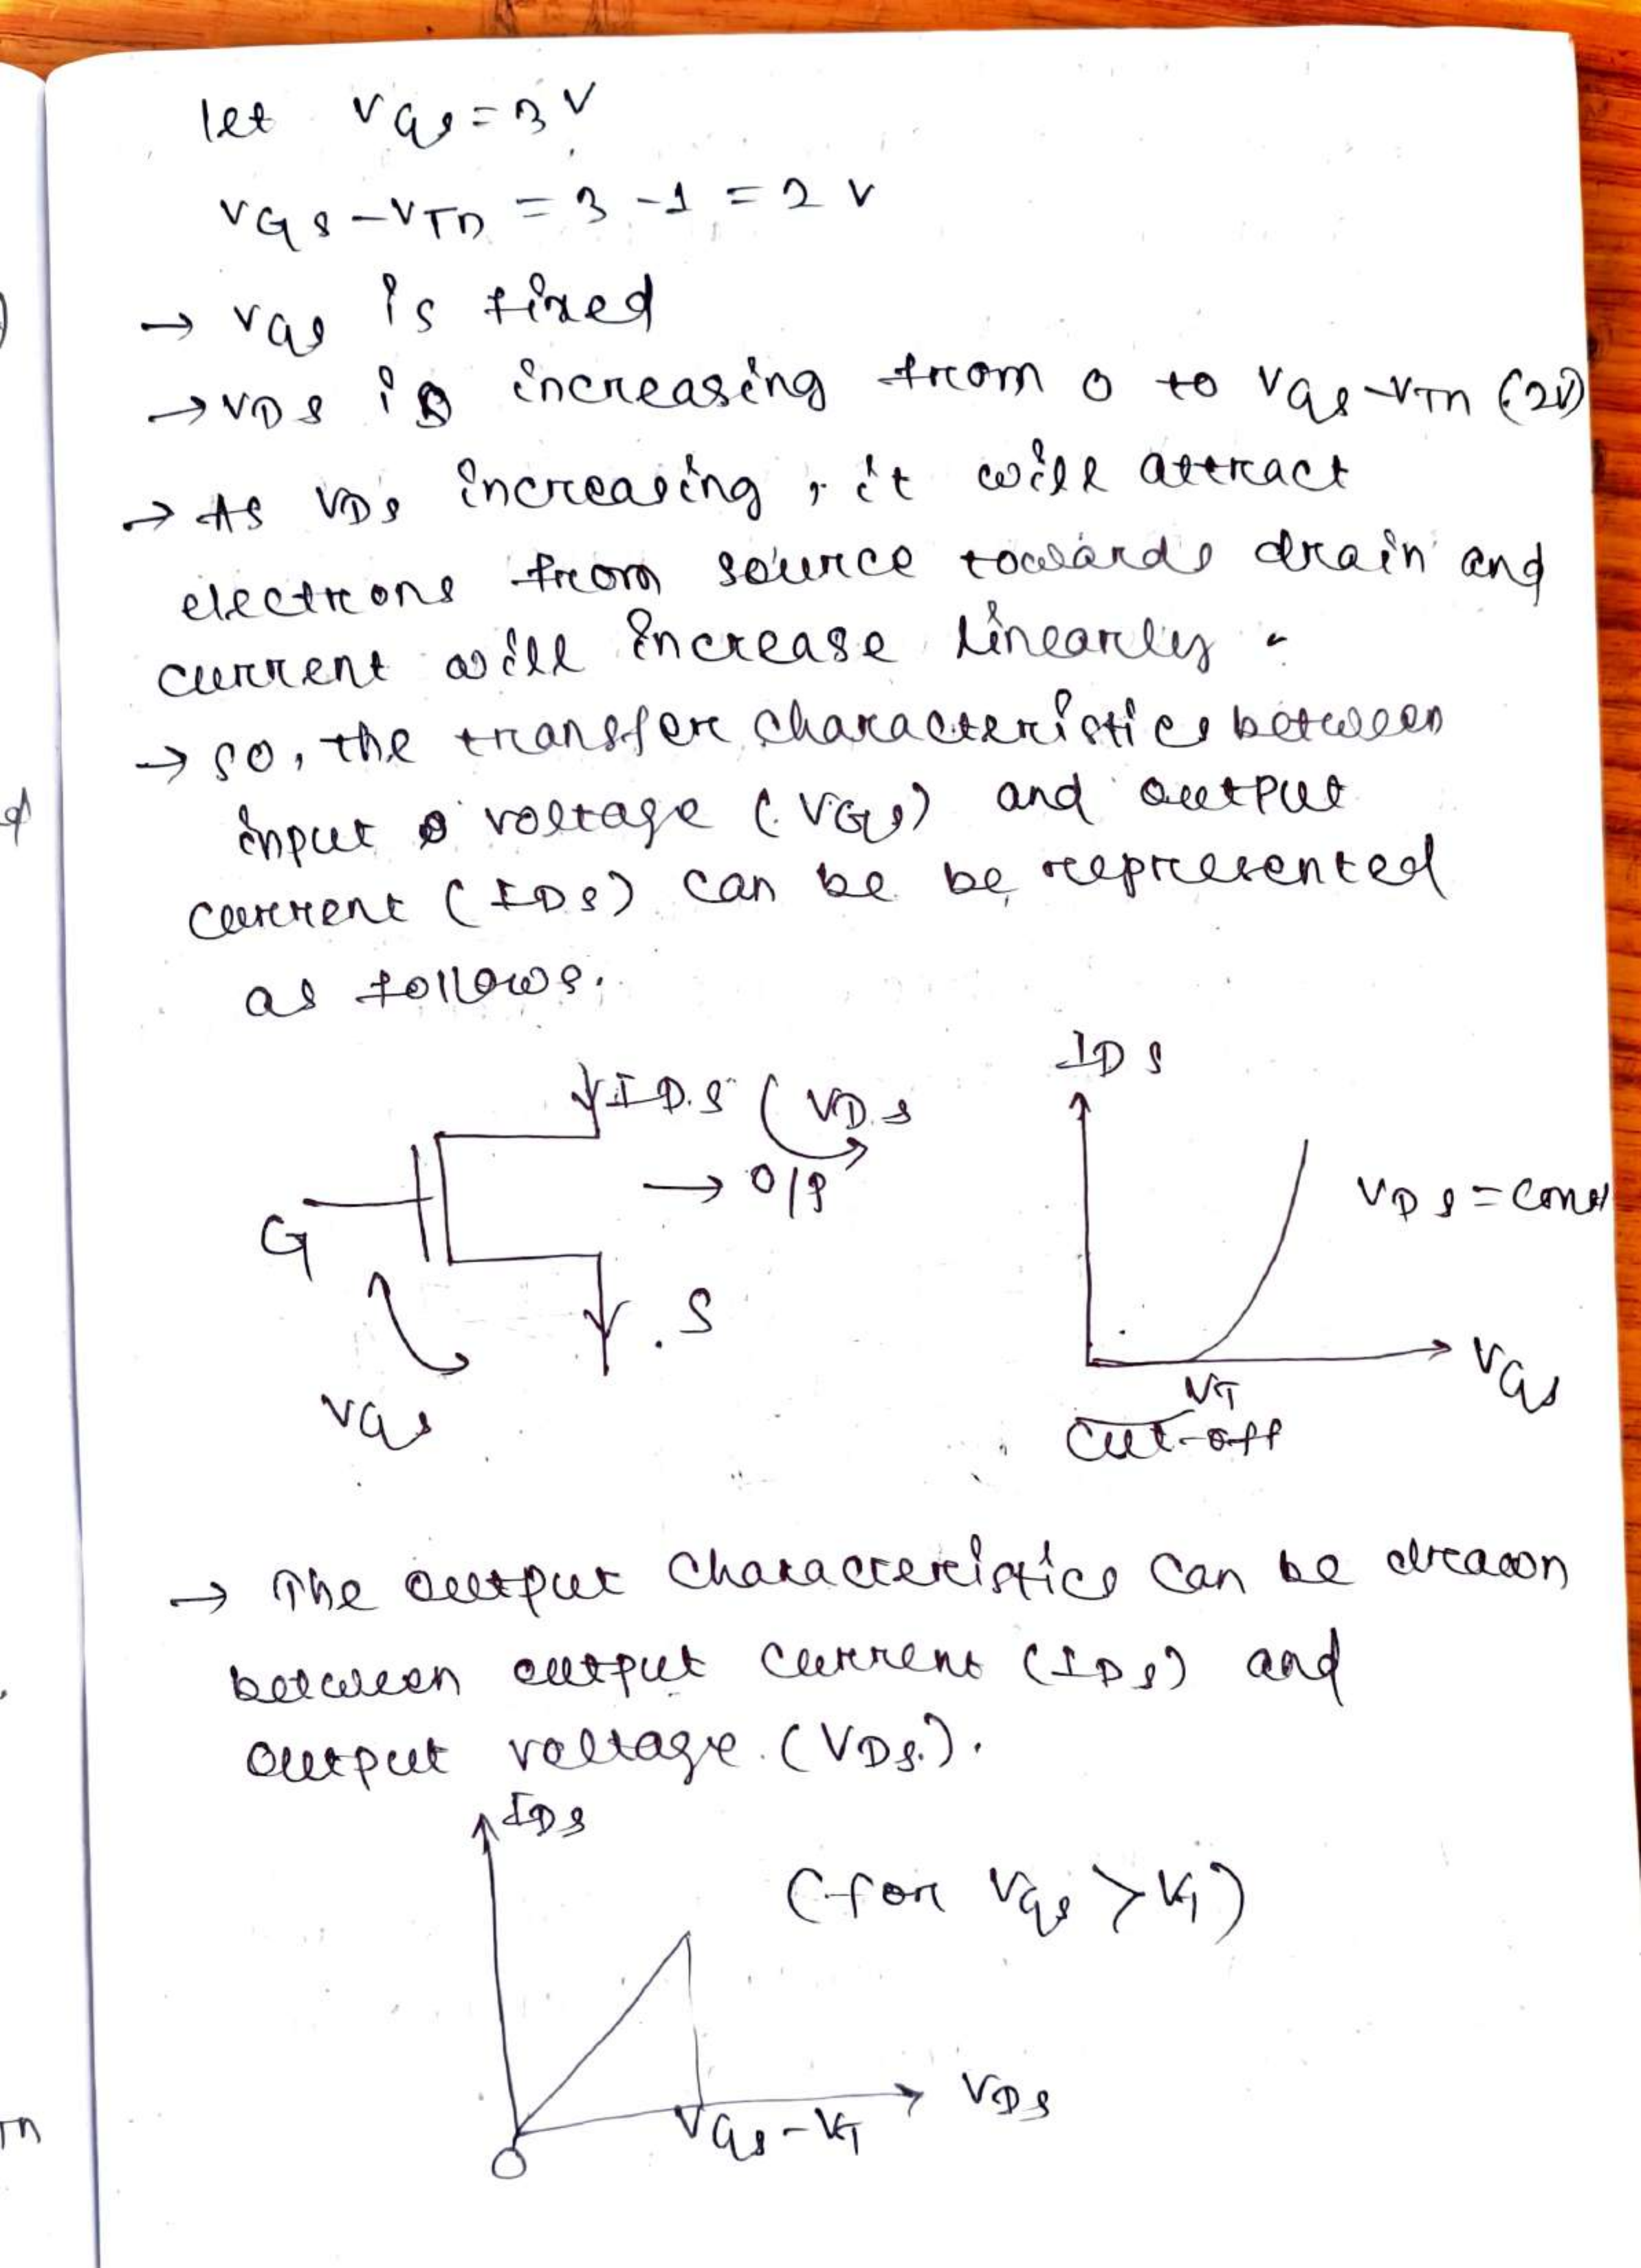 let VGS = 3V
VGS - VTn = 3 - 1 = 2 V
→ VGS is fixed
→ VDS is increasing from 0 to VGS-VTn (2V)
→ As VDS increasing, it will attract
electrons from source towards drain and
current will increase linearly.
→ so, the transfer characteristics between
input voltage (VGS) and output
current (IDS) can be be represented
as follows.
IDS
IDS VDS
→ O/P
VDS = const
G
S
VGS
VT
VGS
Cut-off
→ The output characteristics can be drawn
between output current (IDS) and
output voltage (VDS).
IDS
(for VGS > VT)
VDS
VGS - VT
O